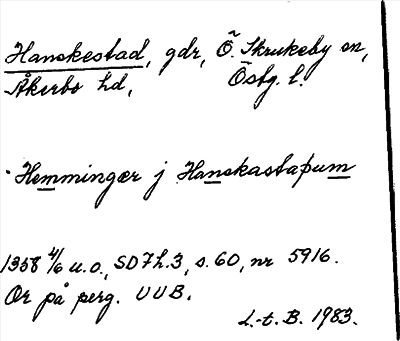 Hanskestad, gdr, Ö. Skrukeby sn,
Åkerbo hd, Östg. l.
· Hemmingær j Hanskastaþum
1358 4/6 u.o., SD 7 h.3, s. 60, nr 5916.
Or på perg. UUB.
L.-t. B. 1983.